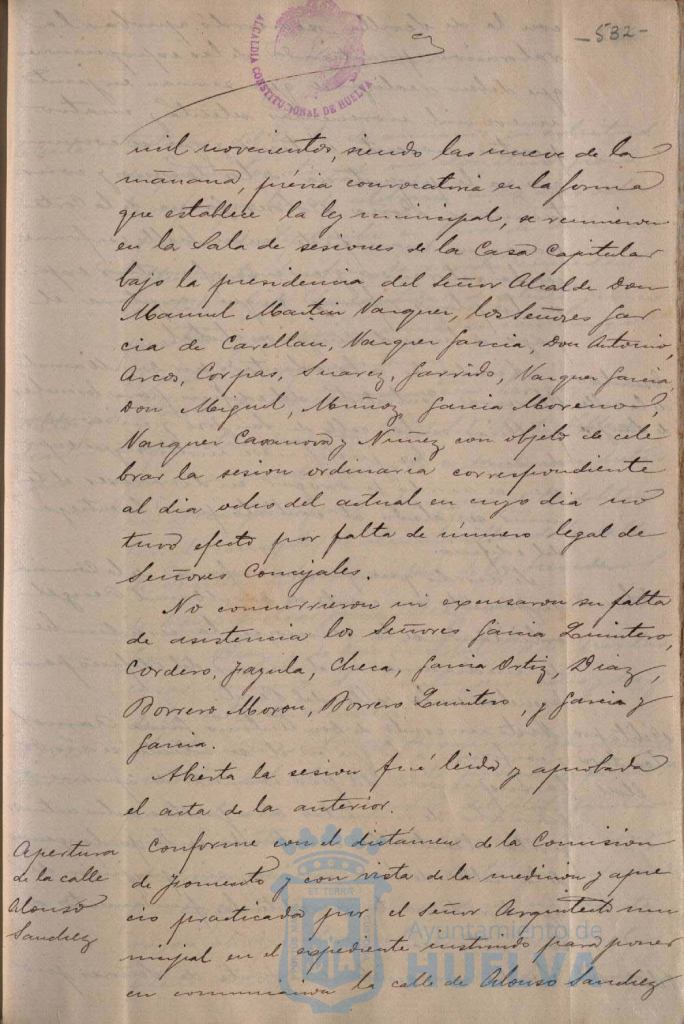 -532-
ALCALDIA CONSTITUCIONAL DE HUELVA
mil novecientos, siendo las nueve de la
mañana, prévia convocatoria en la forma
que establece la ley municipal, se reunieron
en la Sala de sesiones de la Casa Capitular
bajo la presidencia del Señor Alcalde Don
Manuel Martin Vazquez, los Señores Gar
cia de Carellan, Vazquez Garcia, Don Antonio,
Arcos, Corpas, Suarez, Garrido, Vazquez Garcia,
Don Miguel, Muñoz, Garcia Moreno,
Vazquez Casanova y Nuñez con objeto de cele
brar la sesion ordinaria correspondiente
al dia ocho del actual en cuyo dia no
tuvo efecto por falta de número legal de
Señores Concejales.
No concurrieron ni excusaron su falta
de asistencia los Señores Garcia Quintero,
Cordero, Checa, Garcia Ortiz, Diaz,
Borrero Moron, Borrero Quintero, y Garcia y
Garcia.
Abierta la sesion fué leida y aprobada
el acta de la anterior.
Apertura
de la calle
Alonso
Sanchez
Conforme con el dictamen de la Comision
de Fomento y con vista de la medicion y apre
cio practicada por el Señor Arquitecto mu
nicipal en el expediente instruido para poner
en comunicacion la calle de Alonso Sanchez
Ayuntamiento de
HUELVA